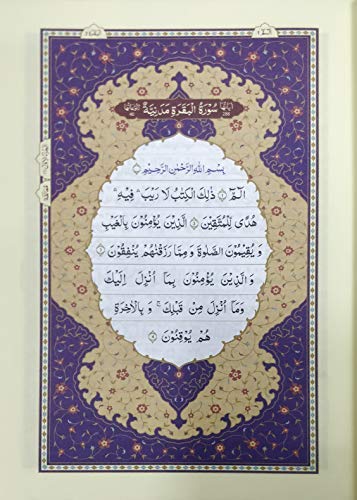 سُوْرَةُ الْبَقَرَةِ مَدَنِيَّةٌ
بِسْمِ اللهِ الرَّحْمٰنِ الرَّحِيْمِ
الٓمّٓ ۚ﴿١﴾ ذٰلِكَ الْكِتٰبُ لَا رَيْبَ ۛ فِيْهِ ۛ
هُدًى لِّلْمُتَّقِيْنَ ﴿٢﴾ الَّذِيْنَ يُؤْمِنُوْنَ بِالْغَيْبِ
وَ يُقِيْمُوْنَ الصَّلٰوةَ وَ مِمَّا رَزَقْنٰهُمْ يُنْفِقُوْنَ ﴿٣﴾
وَ الَّذِيْنَ يُؤْمِنُوْنَ بِمَا اُنْزِلَ اِلَيْكَ
وَمَا اُنْزِلَ مِنْ قَبْلِكَ ۚ وَ بِالْاٰخِرَةِ
هُمْ يُوْقِنُوْنَ ﴿٤﴾